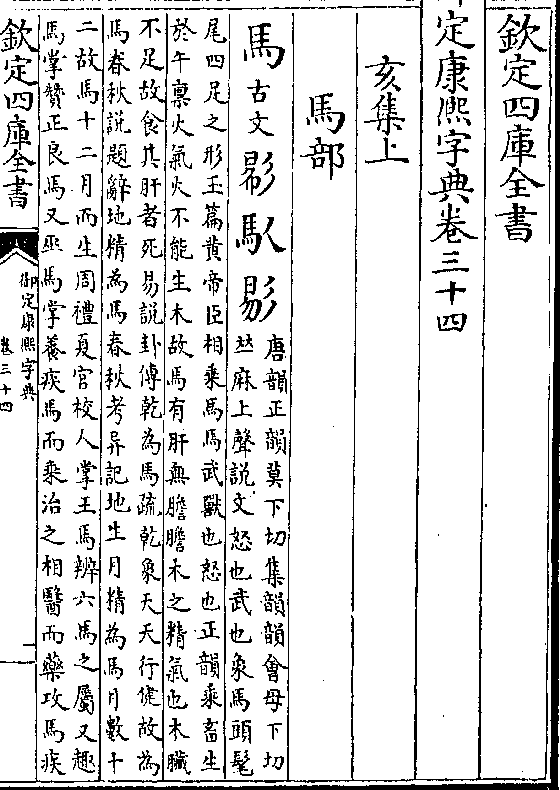 欽定四庫全書
定康熙字典卷三十四
亥集上
馬部
馬古文𢒠𩡬𢒗唐韻正韻莫下切集韻韻會母下切
𠀤麻上聲說文怒也武也象馬頭髦
尾四足之形玉篇黄帝臣相乘馬馬武獸也怒也正韻乘畜生
於午稟火氣火不能生木故馬有肝無膽膽木之精氣也木臟
不足故食其肝者死易說卦傳乾為馬疏乾象天天行健故為
馬春秋說題辭地精為馬春秋考异記地生月精為馬月數十
二故馬十二月而生周禮夏官校人掌王馬辨六馬之屬又趣
馬掌贊正良馬又巫馬掌養疾馬而乘治之相醫而藥攻馬疾
欽定四庫全書
御定康熙字典
卷三十四
一